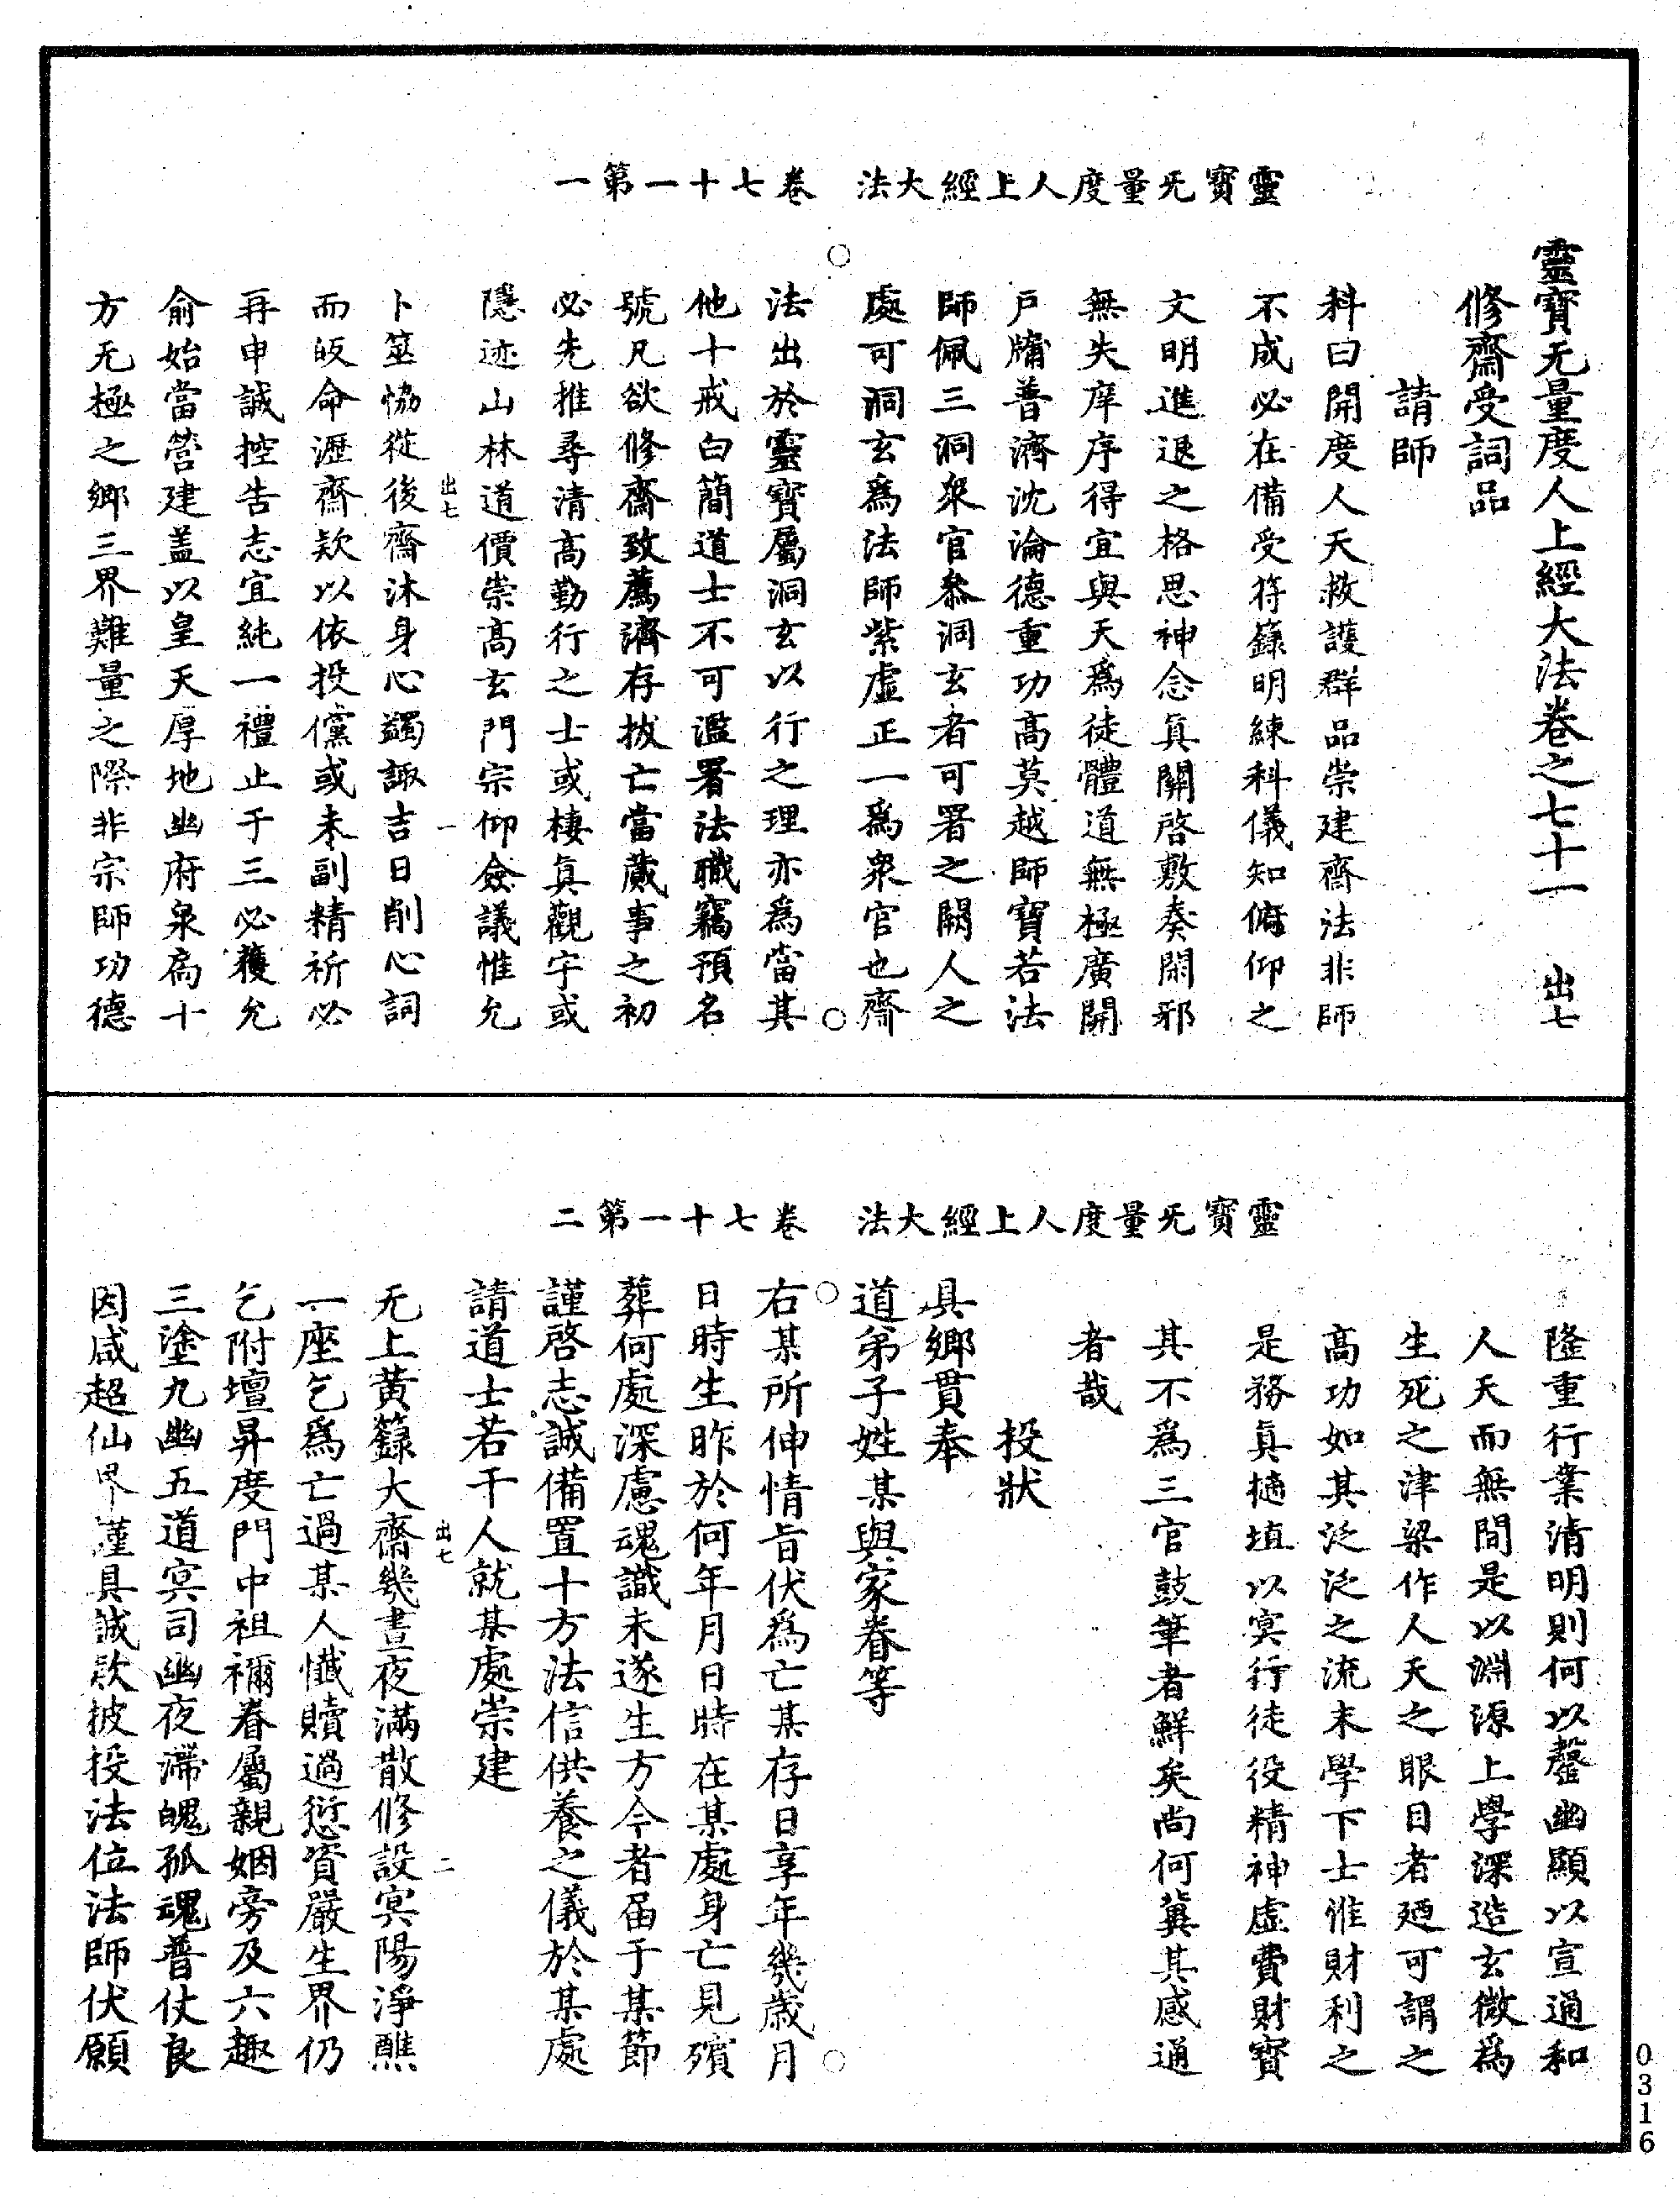 靈寶无量度人上經大法　卷七十一第一
靈寶无量度人上經大法卷之七十一　出七
修齋受詞品
請師
科曰開度人天救護群品崇建齋法非師
不成必在備受符籙明練科儀知俯仰之
文明進退之格思神念真關啓敷奏閑邪
無失庠序得宜與天為徒體道無極廣開
戶牖普濟沈淪德重功高莫越師寶若法
師佩三洞衆官叅洞玄者可署之闕人之
處可洞玄為法師紫虛正一為衆官也齋
法出於靈寶屬洞玄以行之理亦為當其
他十戒白簡道士不可濫署法職竊預名
號凡欲修齋致薦濟存拔亡當蕆事之初
必先推尋清高勤行之士或棲真觀宇或
隱迹山林道價崇高玄門宗仰僉議惟允
出七　一
卜筮恊從後齋沐身心蠲諏吉日削心詞
而皈命瀝齋欵以依投儻或未副精祈必
再申誠控告志宜純一禮止于三必獲允
俞始當營建盖以皇天厚地幽府泉扃十
方无極之鄉三界難量之際非宗師功德
靈寶无量度人上經大法　卷七十一第二
隆重行業清明則何以罄幽顯以宣通和
人天而無間是以淵源上學深造玄微為
生死之津梁作人天之眼目者廼可謂之
高功如其泛泛之流末學下士惟財利之
是務真擿埴以冥行徒役精神虛費財寶
其不為三官鼓筆者鮮矣尚何冀其感通
者哉
投狀
具鄉貫奉
道弟子姓某與家眷等
右某所伸情旨伏為亡某存日享年幾歲月
日時生昨於何年月日時在某處身亡見殯
葬何處深慮魂識未遂生方今者届于某節
謹啓志誠備置十方法信供養之儀於某處
請道士若干人就某處崇建
出七　二
无上黃籙大齋幾晝夜滿散修設冥陽淨醮
一座乞為亡過某人懺贖過愆資嚴生界仍
乞附壇昇度門中祖禰眷屬親姻旁及六趣
三塗九幽五道冥司幽夜滯魄孤魂普仗良
因咸超仙界謹具誠欵披投法位法師伏願
0316